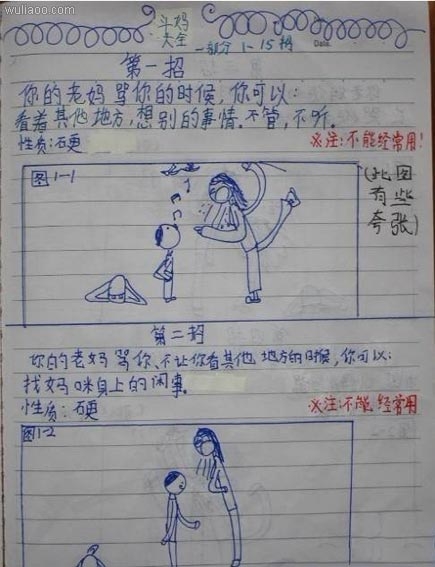 wuliaoo.com
斗妈
大全
一部分 1-15招
Date
第一招
你的老妈骂你的时候,你可以:
看着其他地方,想别的事情.不管,不听.
性质:硬
※注:不能经常用!
图1-1
(此图
有些
夸张)
第二招
你的老妈骂你、不让你看其他地方的时候,你可以:
找妈咪身上的闲事。
性质:硬
※注:不能经常用
图1-2